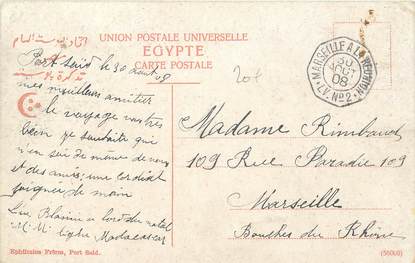 UNION POSTALE UNIVERSELLE
EGYPTE
CARTE POSTALE
تذكرة بوسته
MARSEILLE A LA RÉUNION
30
AOUT
08
L.V. Nº 2
20f
Port Said le 30 aout 08
mes meilleurs amitiés
le voyage va très
bien je souhaite qu'il
n'en soit de meme de vous
et des amis; une cordial
poignée de main
a bord du natal
M.M. ligne Madagascar
Madame Rimbaud
109 Rue Paradis 109
Marseille
Bouches du Rhône
Ephtimios Frères, Port Said.